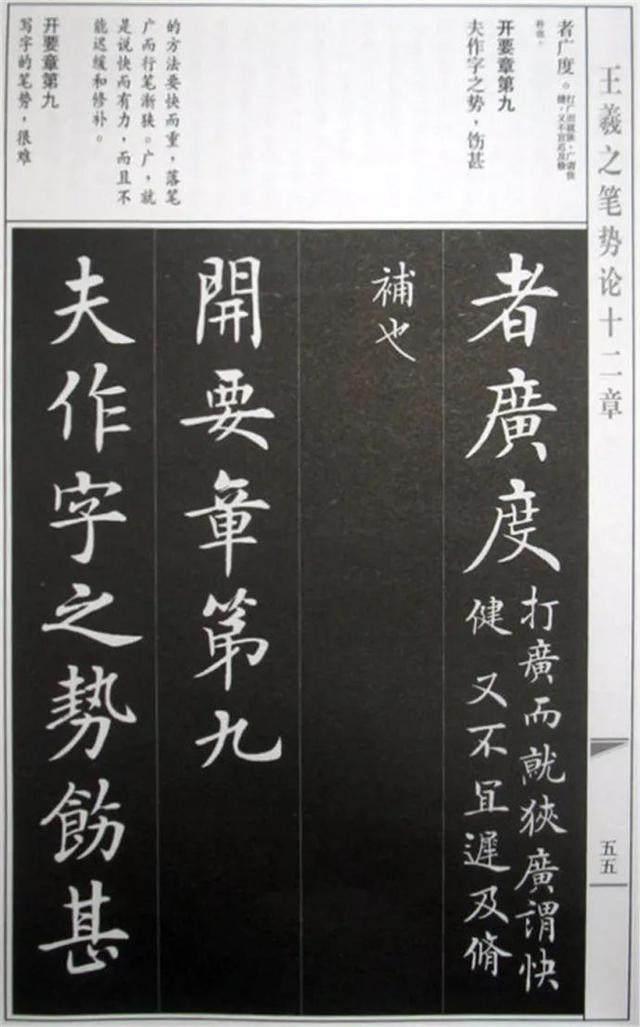 王羲之笔势论十二章
五五
者广度。打广而就狭。广谓快
健，又不宜迟及修
补也。
开要章第九
夫作字之势，饬甚
的方法要快而重，落笔
广而行笔渐狭。广，就
是说快而有力，而且不
能迟缓和修补。
开要章第九
写字的笔势，很难
者廣度打廣而就狹廣謂快
健又不宜遲及脩
補也
開要章第九
夫作字之勢飭甚